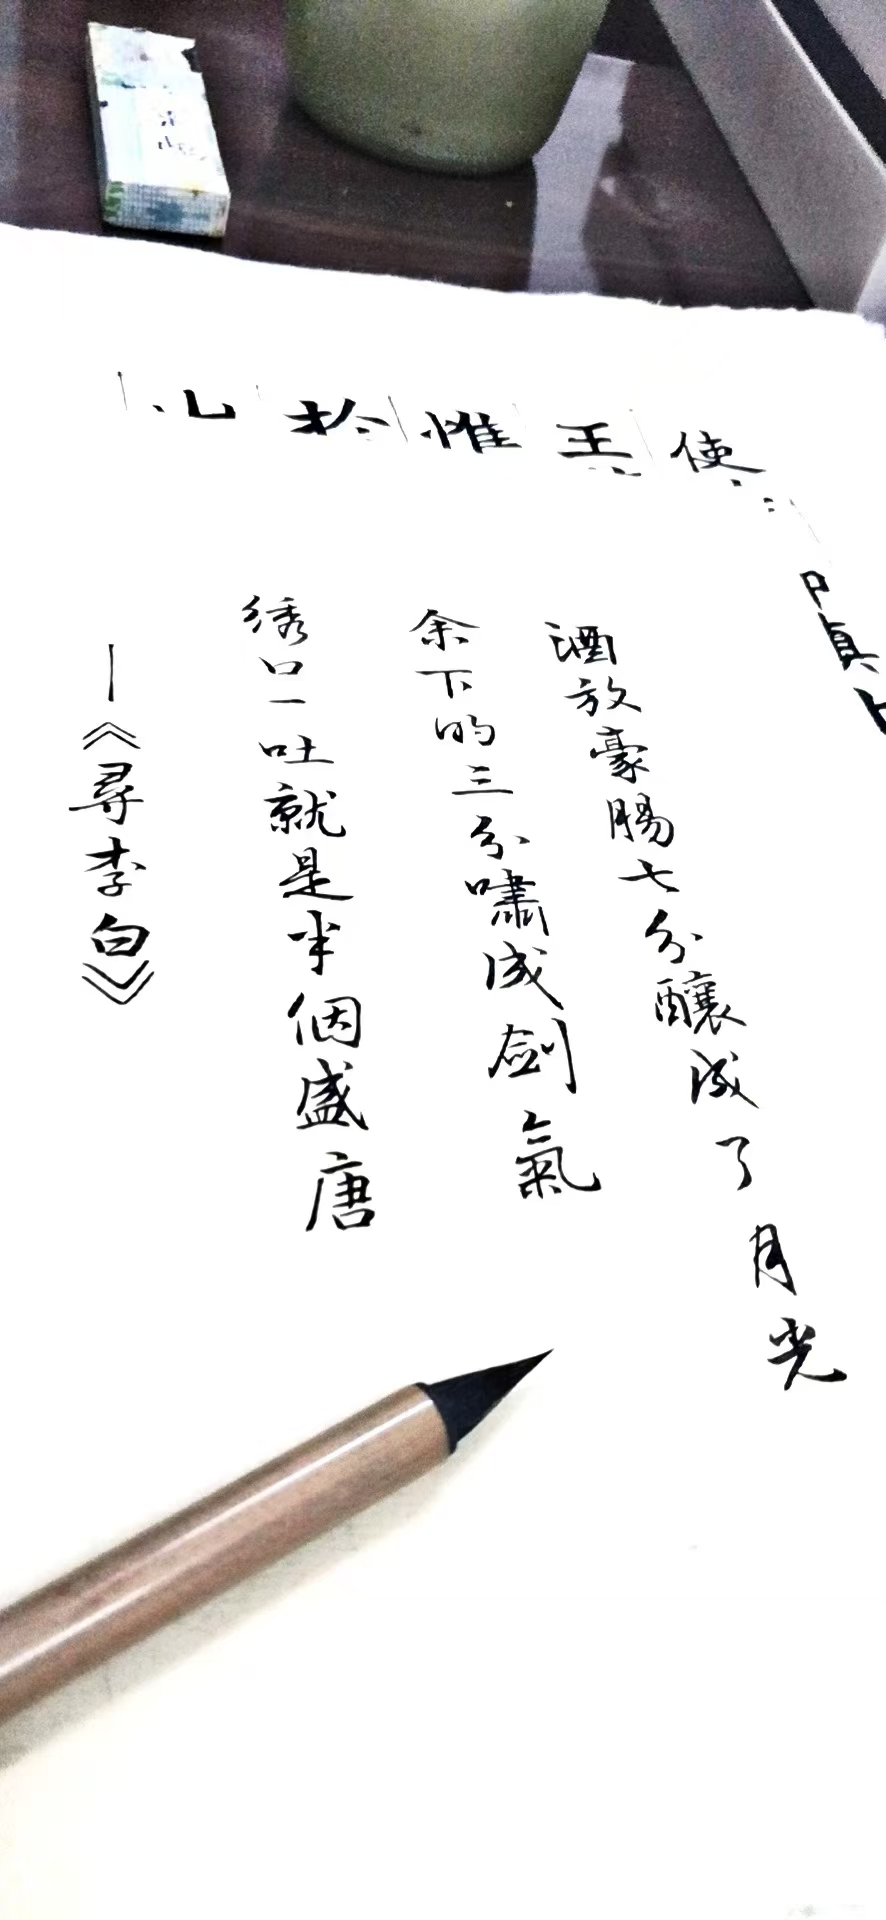 酒放豪腸七分釀成了月光
余下的三分嘯成劍氣
绣口一吐就是半個盛唐
—《尋李白》